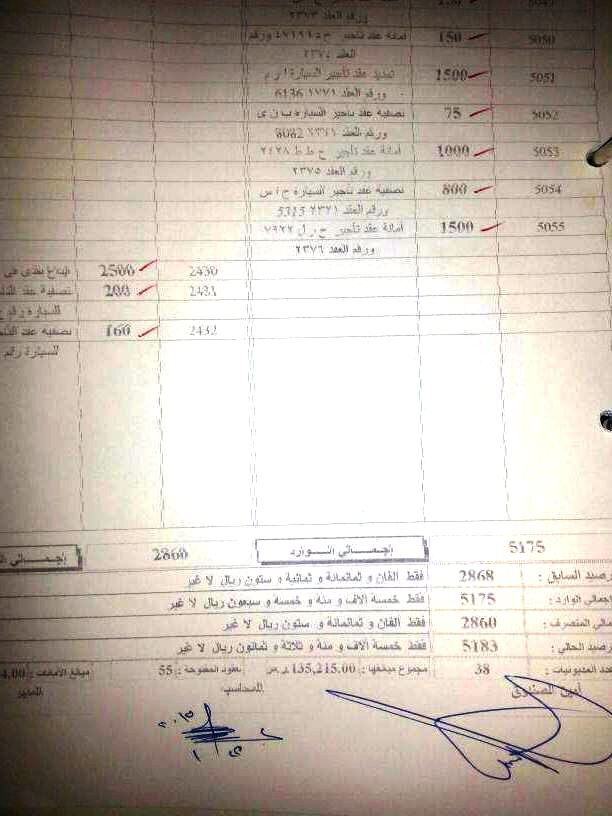 ورقم العقد ٢٣٧٣
5050 150 أمانة عقد تأجير ورقم
العقد ٢٣٧٤
5051 1500 تمديد عقد تأجير السيارة ا ر م
6136 ورقم العقد ١٧٧١
5052 75 تصفية عقد تأجير السيارة ب ن ى
8082 ورقم العقد ٢٣٦١
5053 1000 أمانة عقد تأجير ح ط ط ٢٤٢٨
ورقم العقد ٢٣٧٥
5054 800 تصفية عقد تأجير السيارة ح ا س
5315 ورقم العقد ٢٣٢١
5055 1500 أمانة عقد تأجير ح ر ل ٧٩٢٢
ورقم العقد ٢٣٧٦
2430 2500 نقدي في
2431 200 تصفية عقد
للسيارة رقم
2432 160 تصفية عقد
للسيارة رقم
5175 إجمـــالي الـــوارد 2860 إجمـــالي
رصيد السابق : 2868 فقط الفان و ثمانمائة و ثمانية و ستون ريال لا غير
اجمالي الوارد : 5175 فقط خمسة آلاف و مئة و خمسة و سبعون ريال لا غير
مالي المنصرف : 2860 فقط الفان و ثمانمائة و ستون ريال لا غير
رصيد الحالي : 5183 فقط خمسة آلاف و مئة و ثلاثة و ثمانون ريال لا غير
عدد المديونيات : 38 مجموع مبالغها : 135,215.00 ر.س عقود المفتوحة : 55 مبالغ الأمانات : 4.00
أمين الصندوق المحاسب المدير